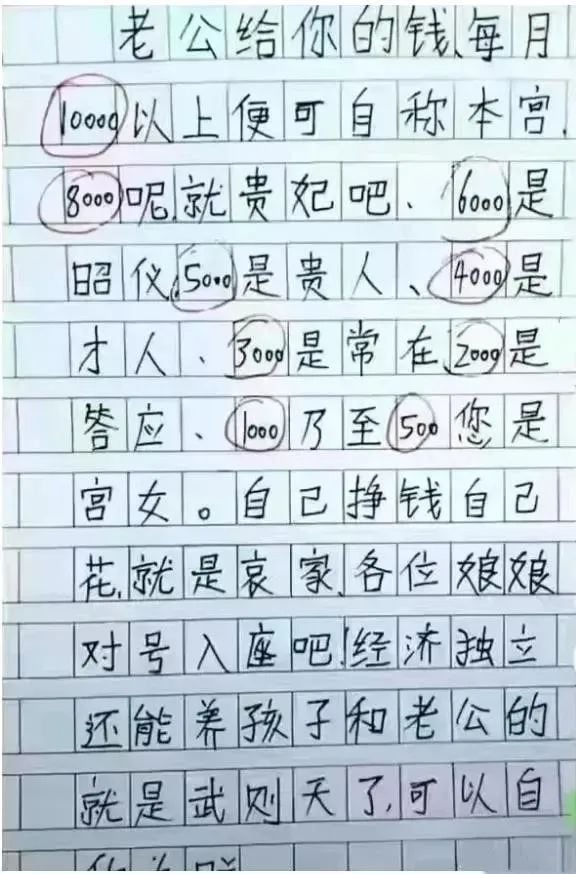 老公给你的钱、每月
10000以上便可自称本宫,
8000呢就贵妃吧、6000是
昭仪,5000是贵人、4000是
才人、3000是常在,2000是
答应、1000乃至500您是
宫女。自己挣钱自己
花,就是哀家,各位娘娘
对号入座吧!经济独立
还能养孩子和老公的
就是武则天了,可以自